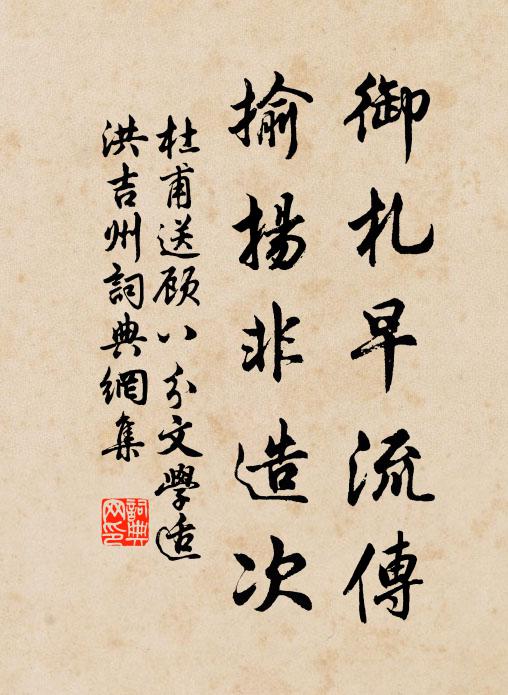 御札早流傳
揄揚非造次
杜甫送顾八分文學适
洪吉州詞典網集
詞典網印